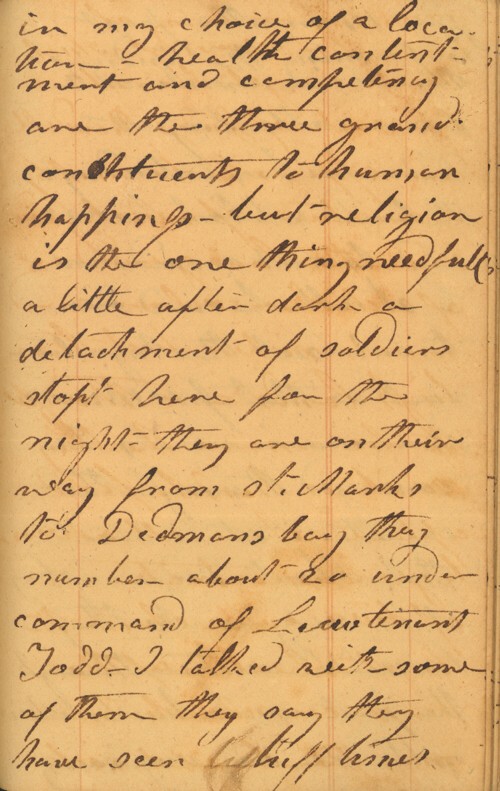 in my choice of a loca-
tion - health content-
ment and competency
are the three grand
constituents to human
happings - but religion
is the one thing needfull
a little after dark a
detachment of soldiers
stopt here for the
night - they are on their
way from st. Marks
to Dedmans bay they
number about 20 under
command of Lieutenant
Todd - I talked with some
of them they say they
have seen tuff times